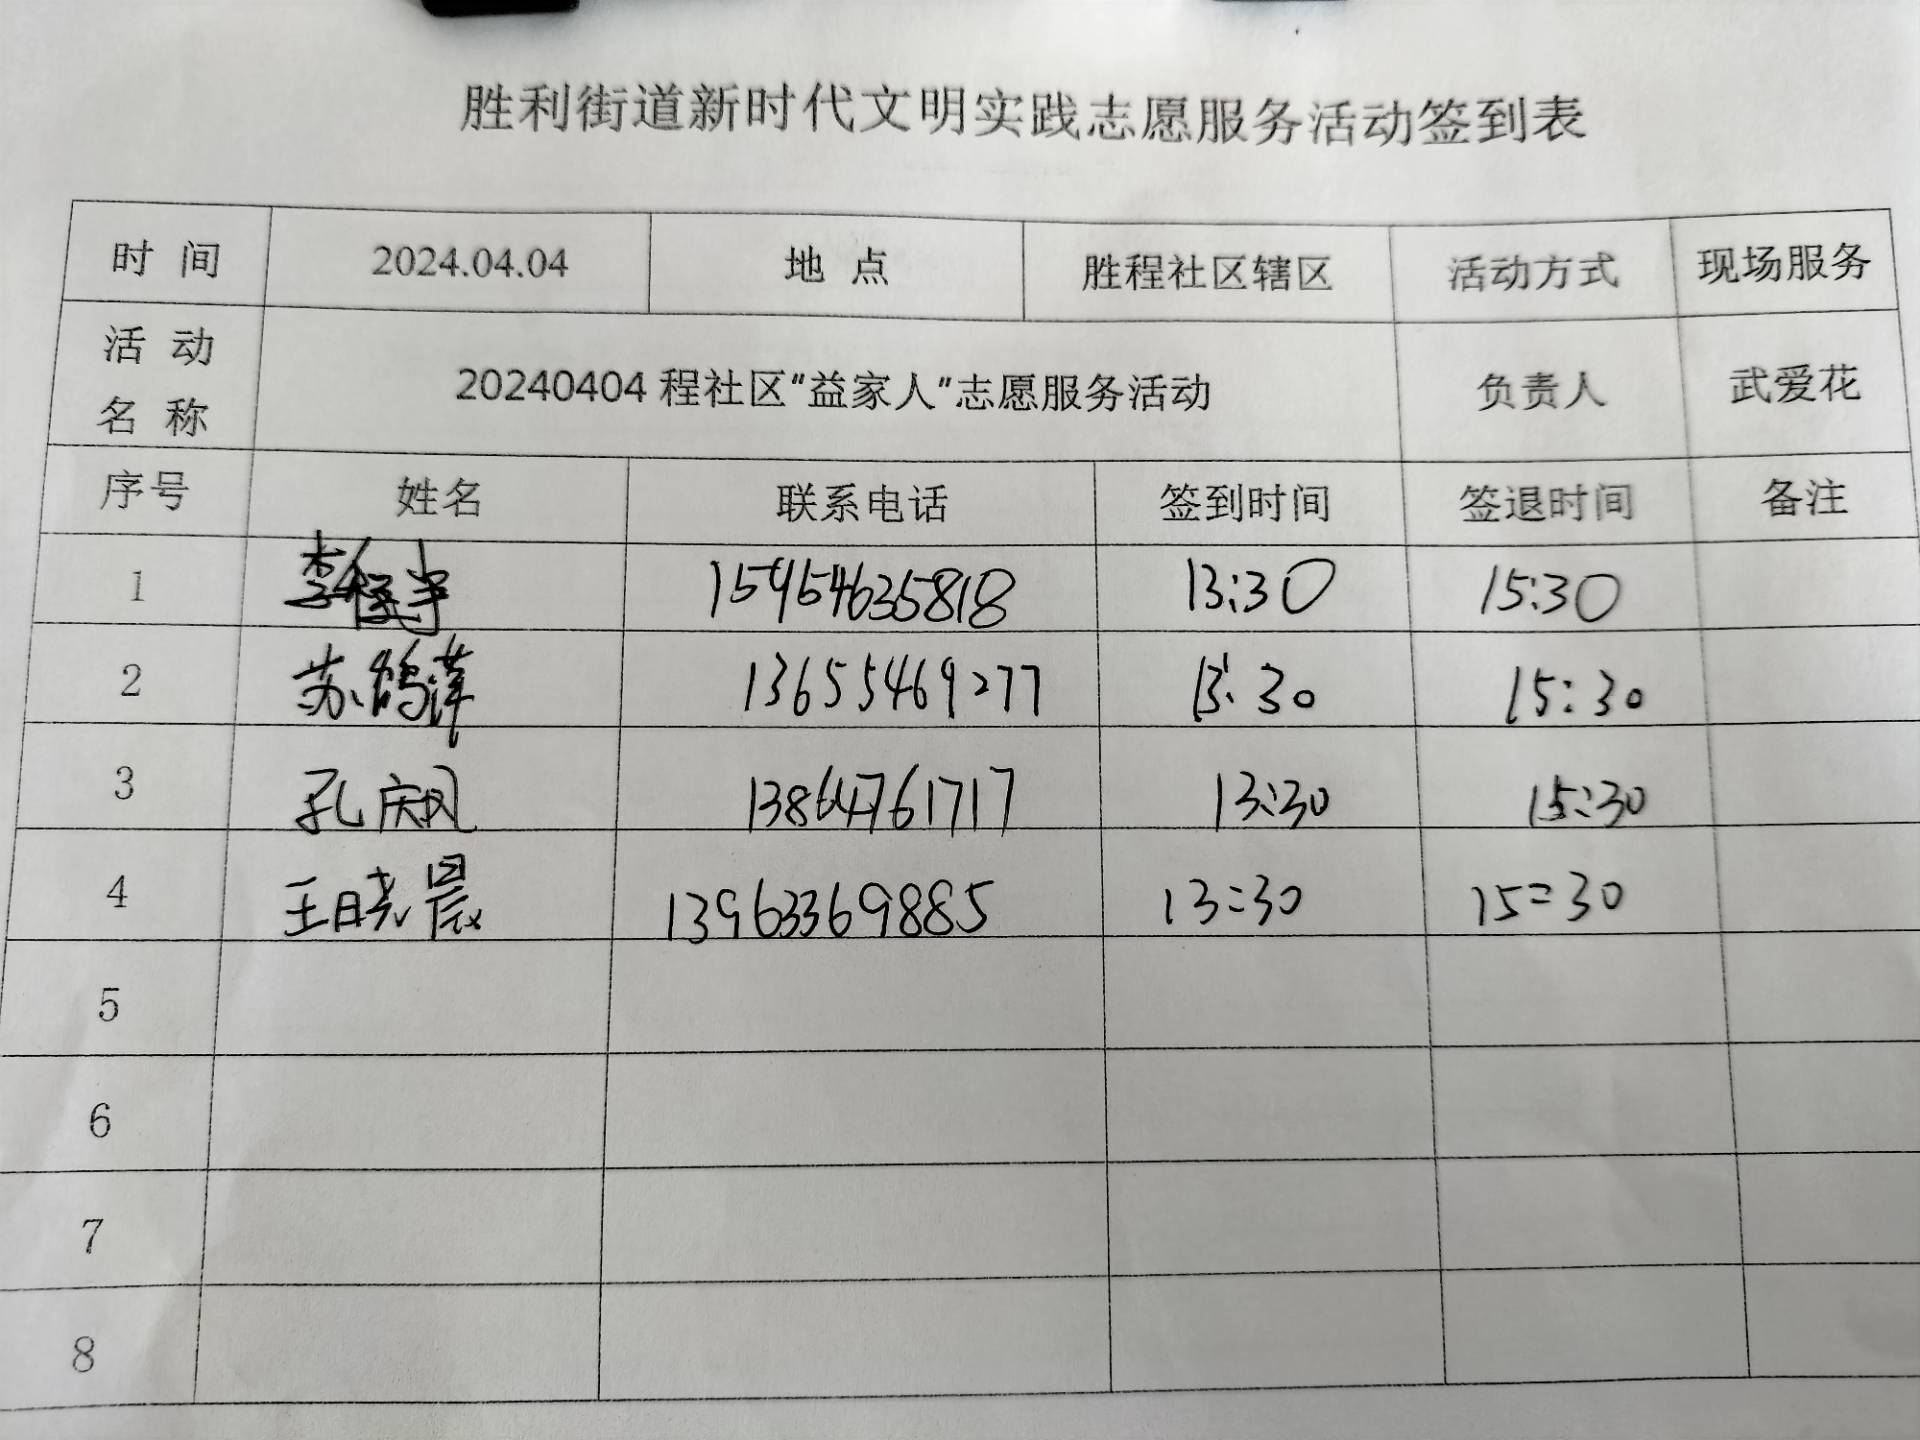 胜利街道新时代文明实践志愿服务活动签到表
时 间 2024.04.04 地 点 胜程社区辖区 活动方式 现场服务
活 动
名 称 20240404 程社区“益家人”志愿服务活动 负责人 武爱花
序号 姓名 联系电话 签到时间 签退时间 备注
1 李 15954635818 13:30 15:30
2 苏鹤萍 13655469277 13:30 15:30
3 孔庆凤 13864761717 13:30 15:30
4 王晓晨 13963369885 13:30 15:30
5
6
7
8